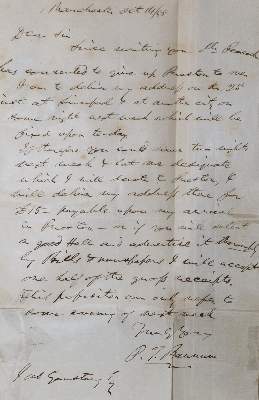 Manchester Oct 18/58
Dear Sir
Since writing you Mr Peacock
has consented to give up Preston to me
I am to deliver my address on the 25
inst at Liverpool & at another city on
some night next week which will be
fixed upon to-day
If therefore you could name two nights
next week & let me designate
which I will devote to Preston, I
will deliver my address there for
£15 – payable upon my arrival
in Preston – or if you will select
a good Hall and advertise it thoroughly
by Bills & newspapers I will accept
one half of the gross receipts.
This proposition can only refer to
some evening of next week
Truly Yours
P. T. Barnum